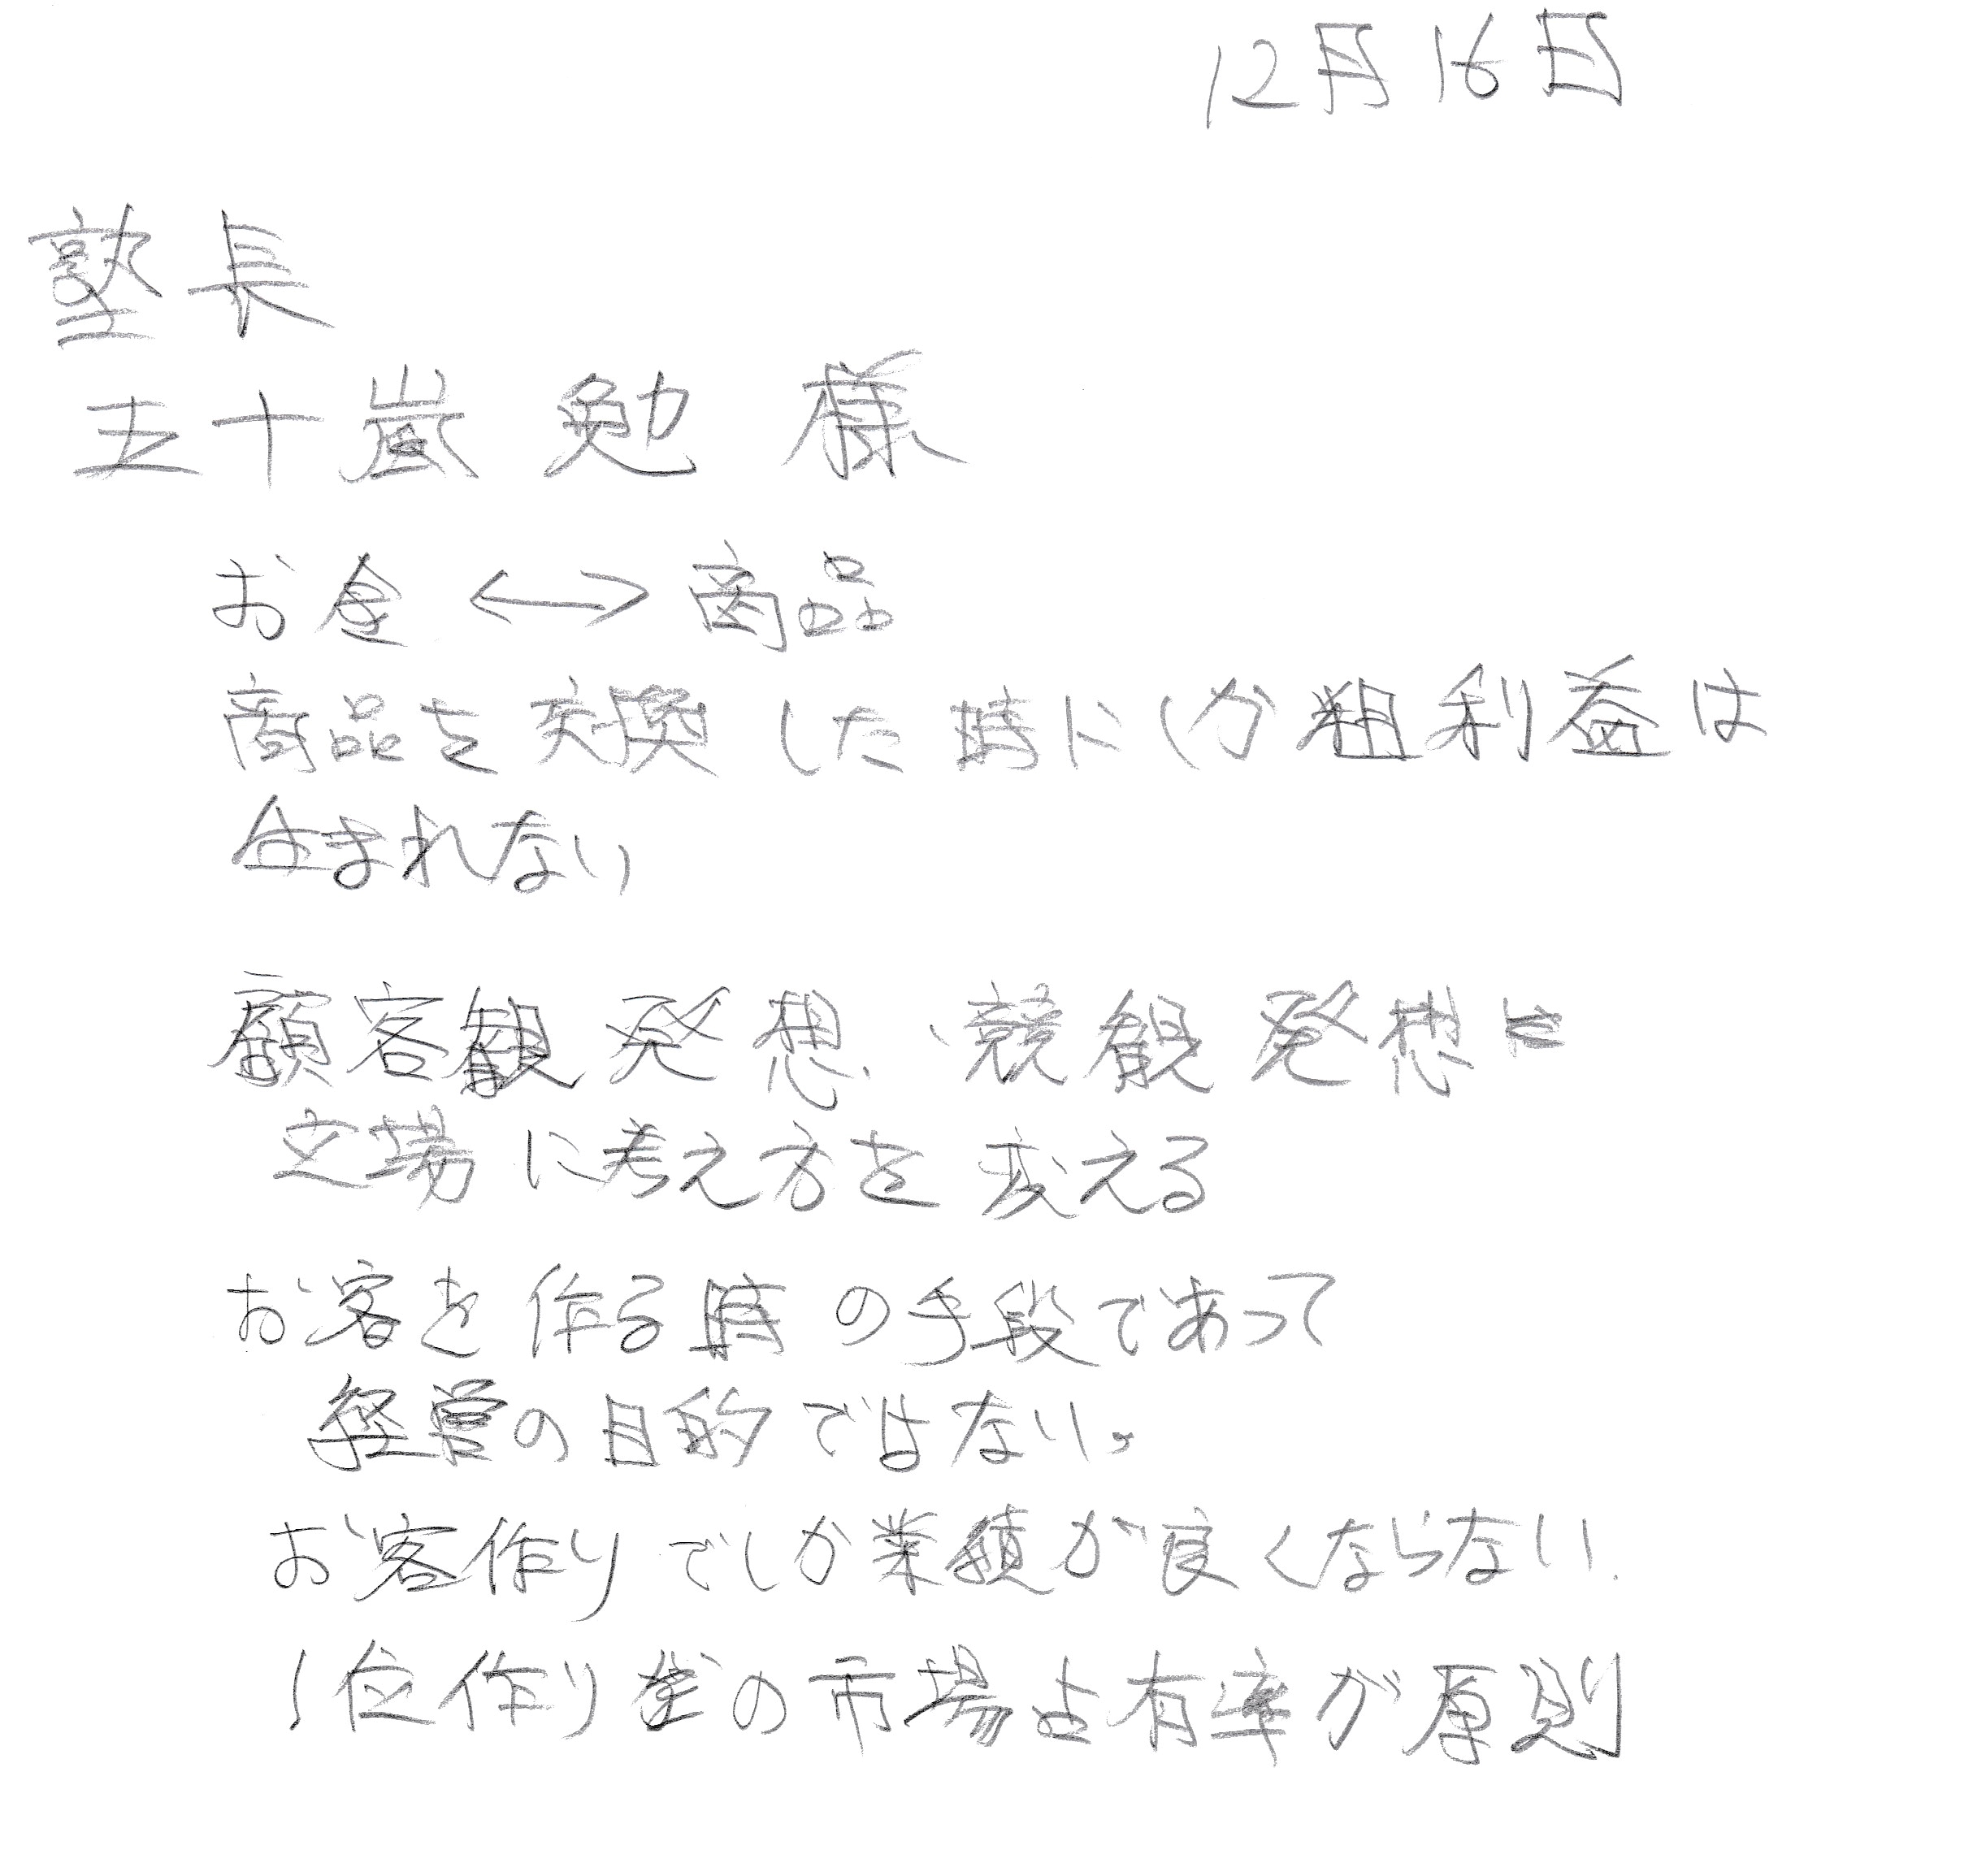 12月16日
塾長
五十嵐 勉 様
お金 ←→ 商品
商品を交換した時にしか粗利益は
生まれない
顧客観発想、競観発想に
立場に考え方を変える
お客を作る時の手段であって
経営の目的ではない。
お客作りでしか業績が良くならない.
1位作りの市場占有率が原則